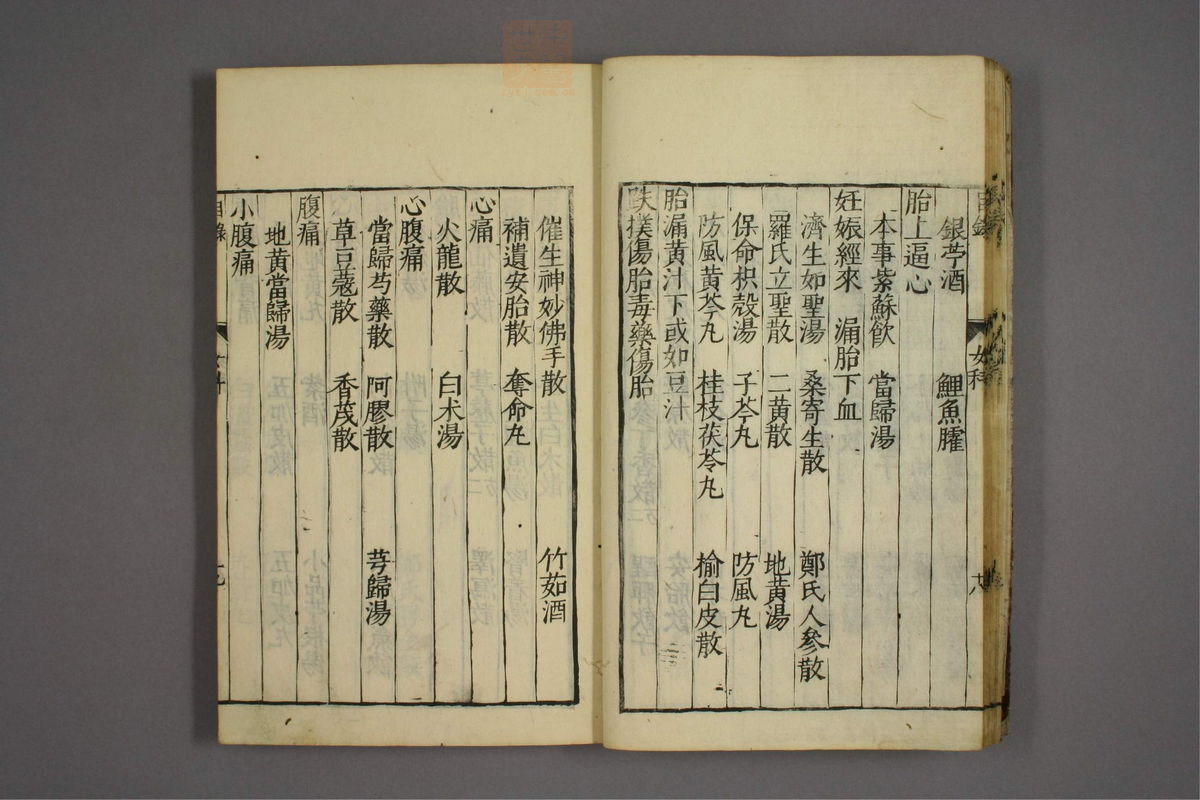 目錄 女科 十八
銀苧酒 鯉魚臛
胎上逼心
本事紫蘇飲 當歸湯
妊娠經來 漏胎下血
濟生如聖湯 桑寄生散 鄭氏人參散
羅氏立聖散 二黃散 地黃湯
保命枳殼湯 子芩丸 防風丸
防風黃芩丸 桂枝茯苓丸 榆白皮散
胎漏黃汁下或如豆汁
跌撲傷胎毒藥傷胎
催生神妙佛手散 竹茹酒
補遺安胎散 奪命丸
心痛
火龍散 白朮湯
心腹痛
當歸芍藥散 阿膠散 芎歸湯
草豆蔻散 香茂散
腹痛
地黃當歸湯
小腹痛
目錄